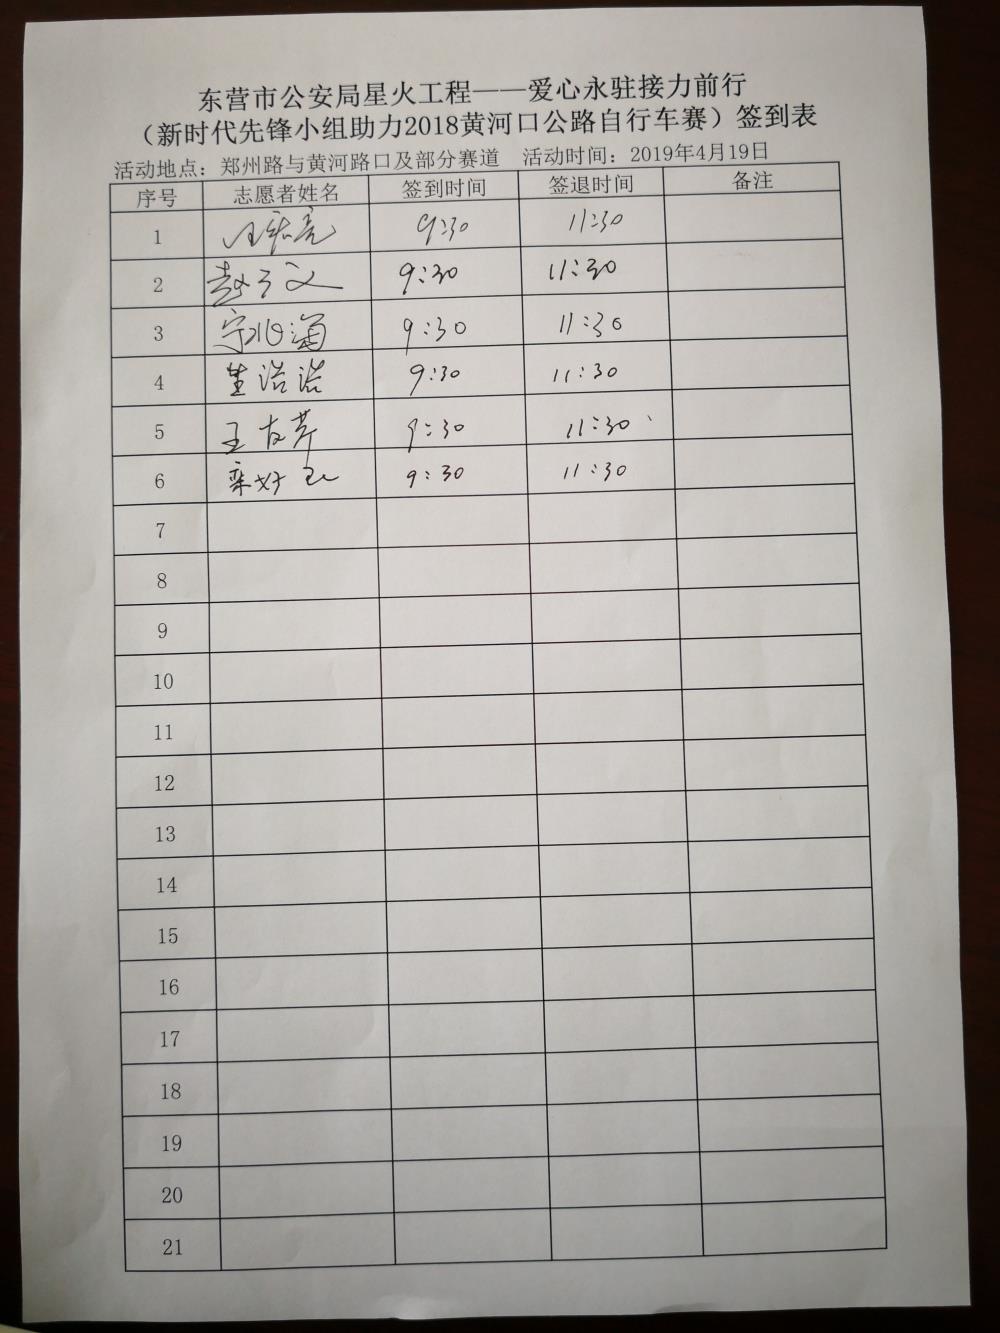 东营市公安局星火工程——爱心永驻接力前行
（新时代先锋小组助力2018黄河口公路自行车赛）签到表
活动地点：郑州路与黄河路口及部分赛道 活动时间：2019年4月19日
序号 志愿者姓名 签到时间 签退时间 备注
1 9:30 11:30
2 赵子文 9:30 11:30
3 宁兆海 9:30 11:30
4 生浩浩 9:30 11:30
5 王友芹 9:30 11:30
6 栾好 9:30 11:30
7
8
9
10
11
12
13
14
15
16
17
18
19
20
21